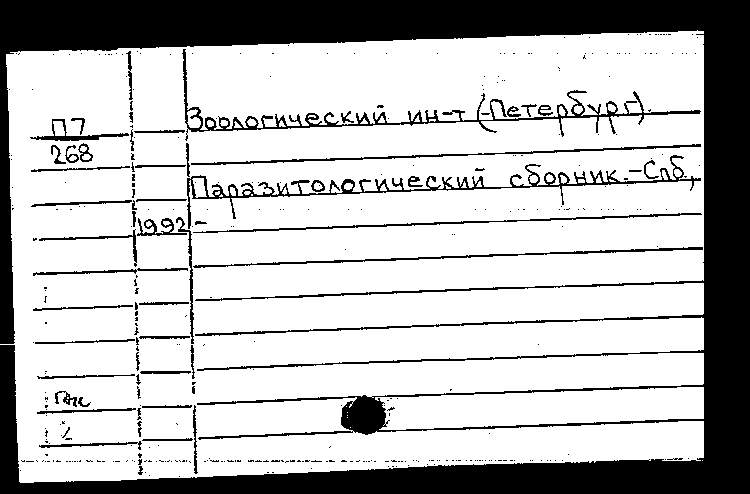 П7 Зоологический ин-т (-Петербург).
268
Паразитологический сборник.-Спб,
1992-